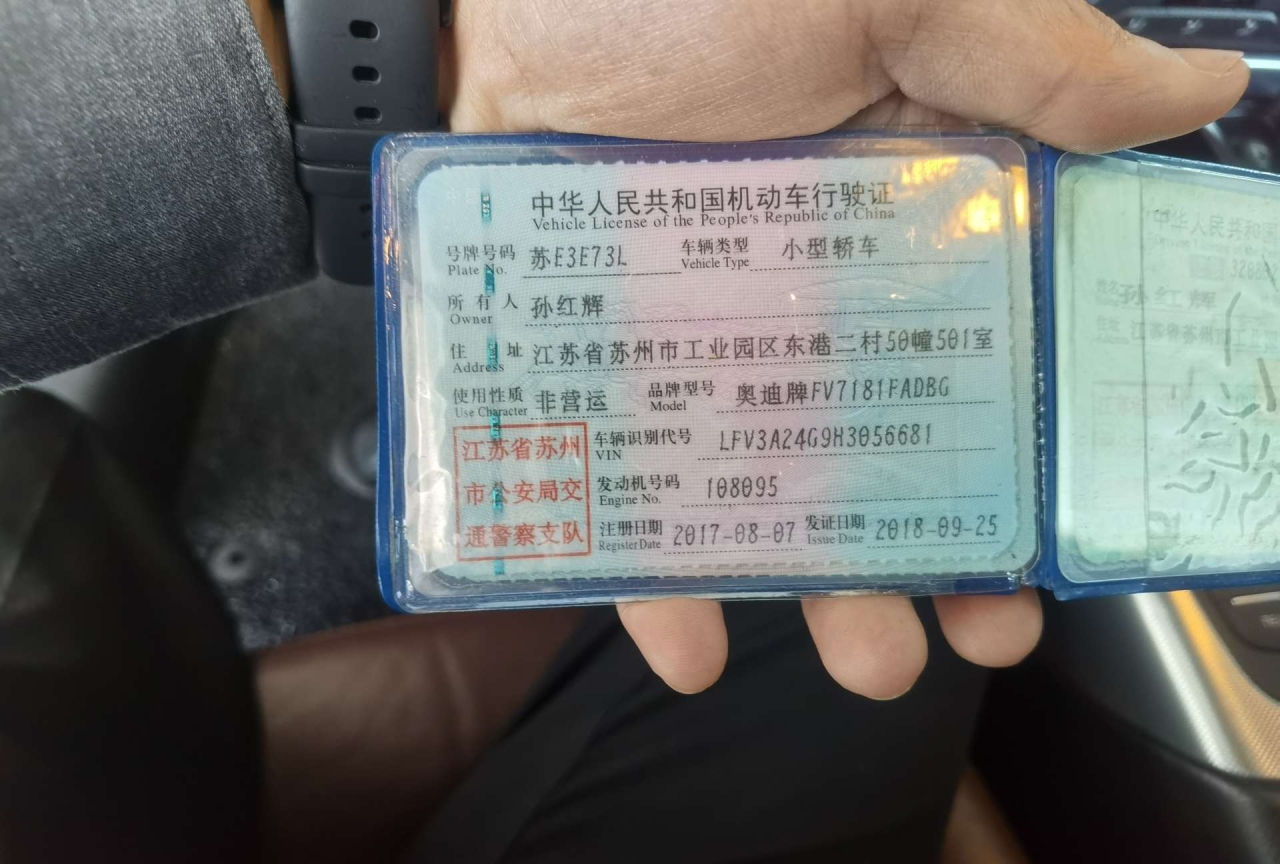 中华人民共和国机动车行驶证
Vehicle License of the People's Republic of China
号牌号码 苏E3E73L 车辆类型 小型轿车
Plate No. Vehicle Type
所有人 孙红辉
Owner
住址 江苏省苏州市工业园区东港二村50幢501室
Address
使用性质 非营运 品牌型号 奥迪牌FV7181FADBG
Use Character Model
江苏省苏州
市公安局交
通警察支队
车辆识别代号 LFV3A24G9H3056681
VIN
发动机号码 108095
Engine No.
注册日期 2017-08-07 发证日期 2018-09-25
Register Date Issue Date
中华人民共和国